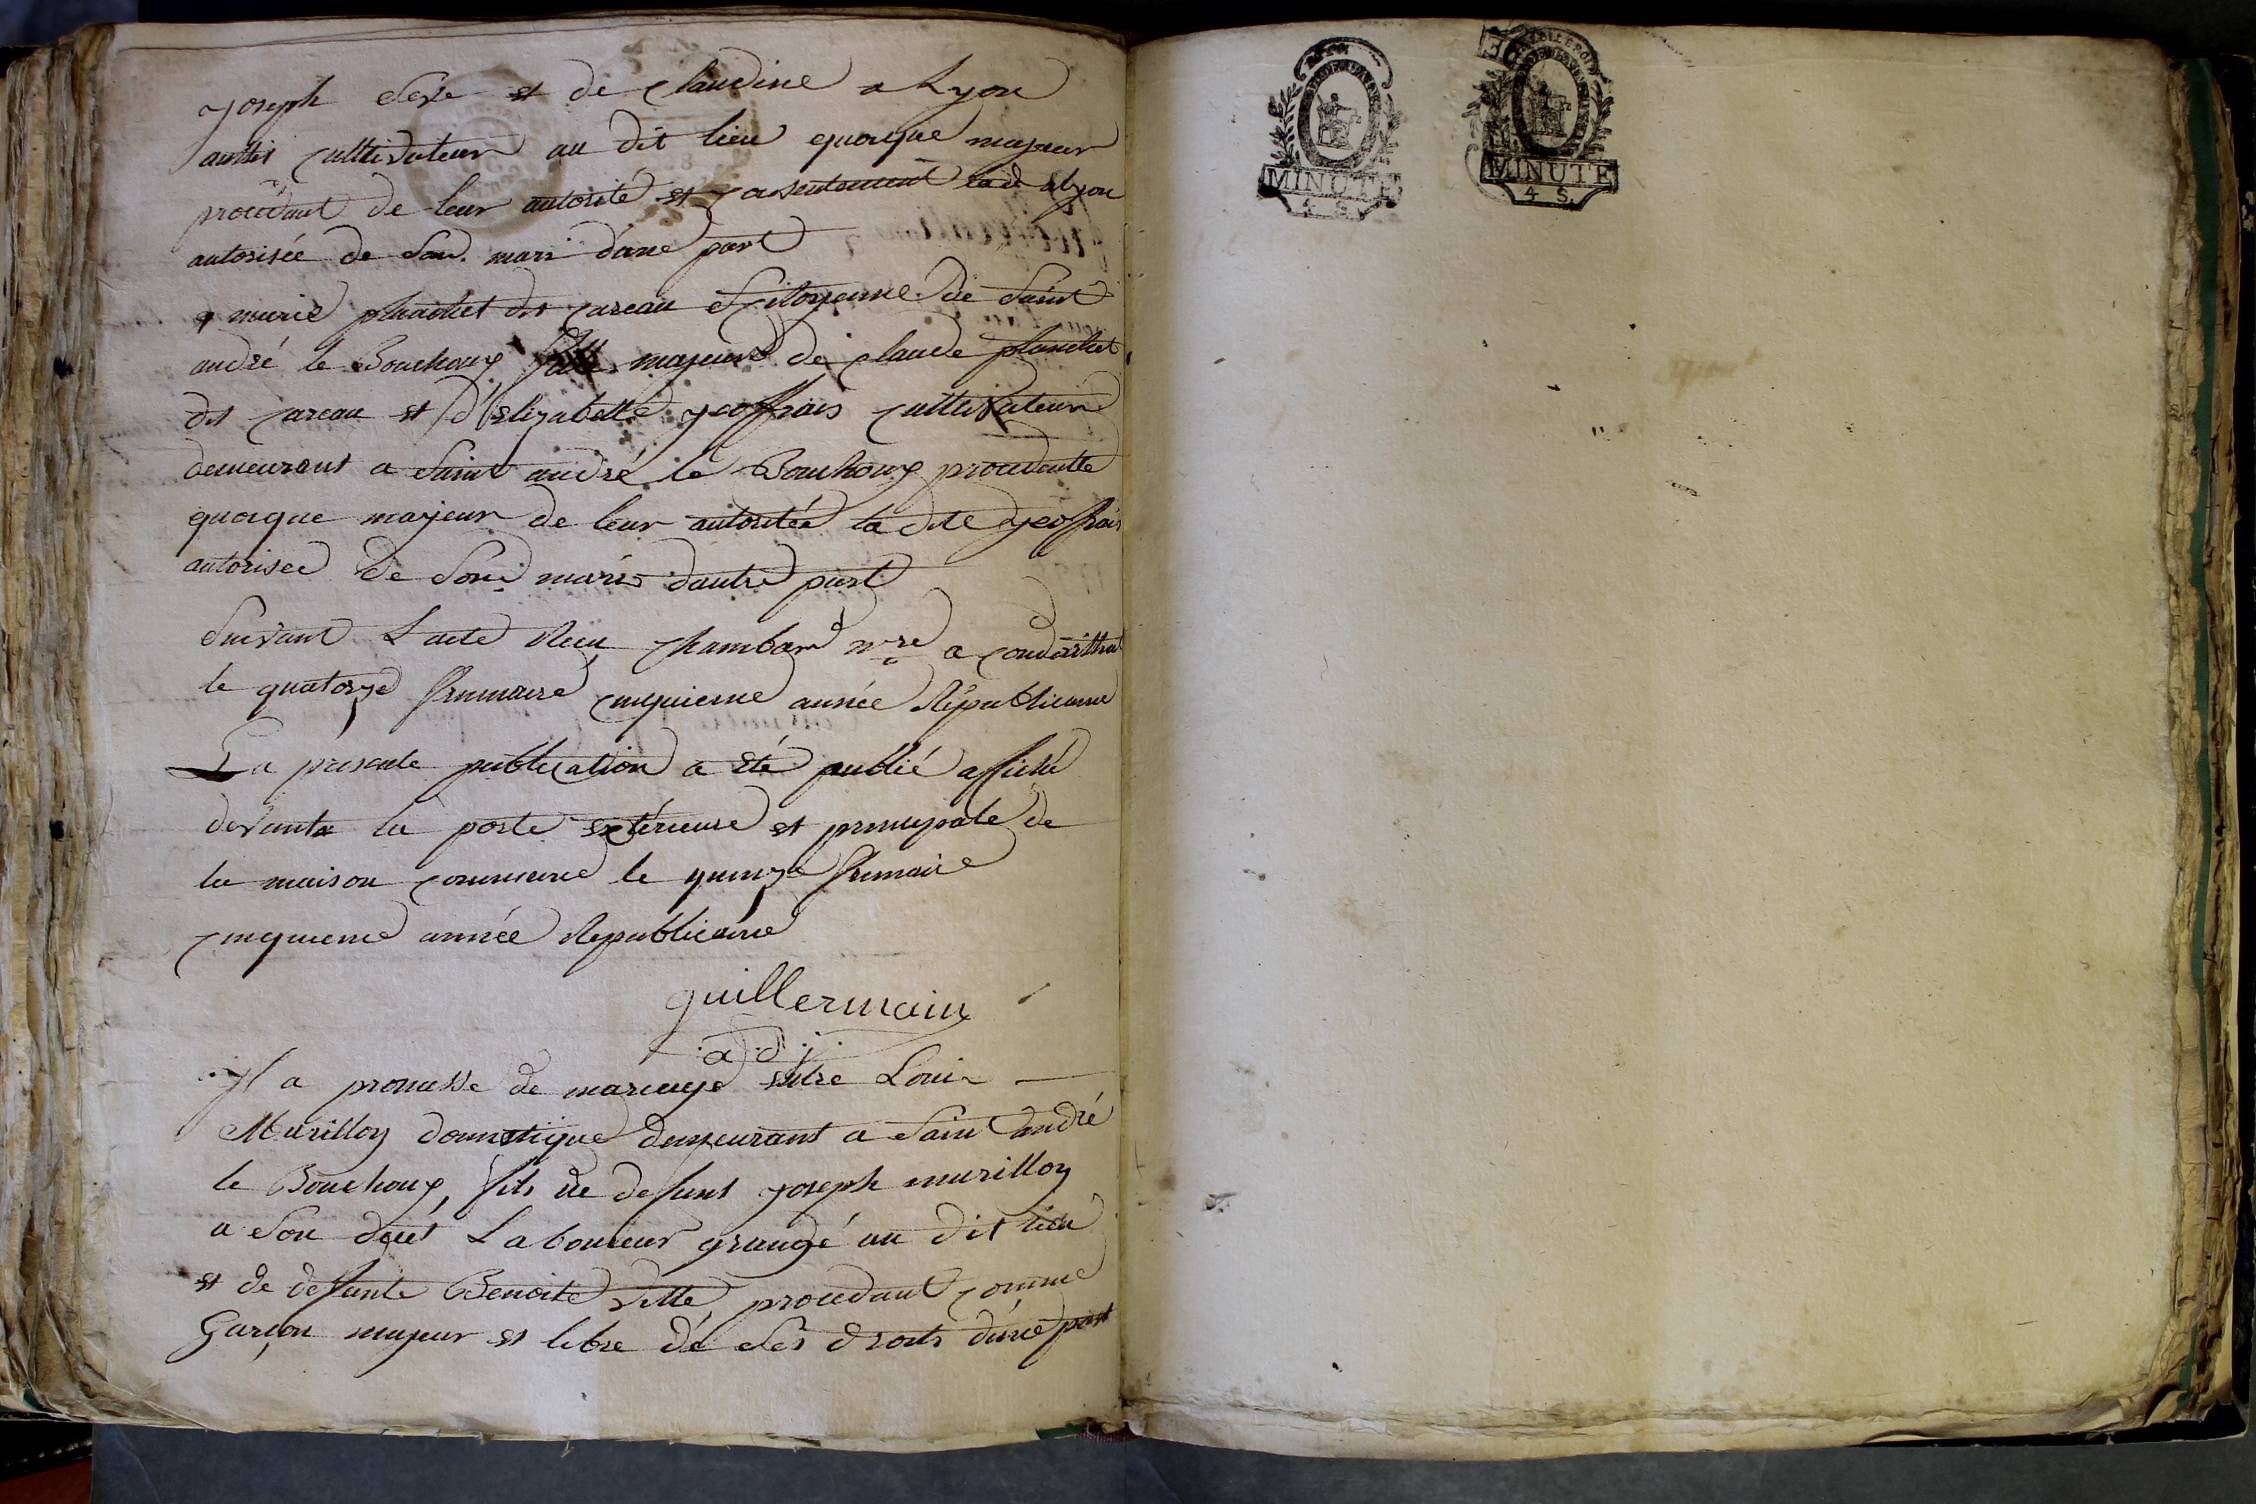 joseph seve et de Claudine a Lyon
aussis cultivateur au dit lieu quoique majeur
procedant de leur autorité et consentement
autorisée de son mari d'une part
et marie planchet dit careau citoyenne de saint
andré le Bouchoux fille majeure de claude planchet
dit careau et d'elizabette geoffrais cultivateur
demeurant a saint andré le Bouchoux procedente
quoique majeur de leur autoritée la dite geoffrais
autorisee de son mari dautre part
suivant L acte Recu Chambard nre a
le quatorze frimaire cinquieme année Republicaine
La presente publication a été publié affiché
devant la porte extérieure et principale de
la maison commune le quinze frimaire
cinquieme année Republicaine
guillermain
adj
Il a promesse de mariage entre Louis
Murillon domestique demeurant a saint andré
le Bouchoux fils de defunt joseph murillon
a son decet Laboureur grangé au dit lieu
et de defunte Benoite Vitte procedant comme
Garçon majeur et libre de ses droits d'une part
MINUTE
4 S.
MINUTE
4 S.